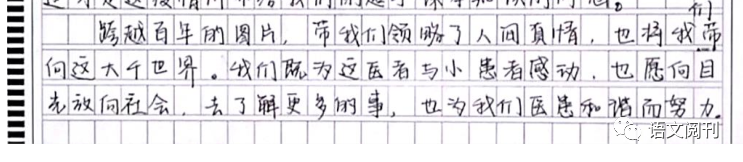 们
跨越百年的图片，带我们领略了人间真情，也将我带
向这大千世界。我们既为这医者与小患者感动，也愿向目
光放向社会，去了解更多的事，也为我们医患和谐而努力。
语文阅刊